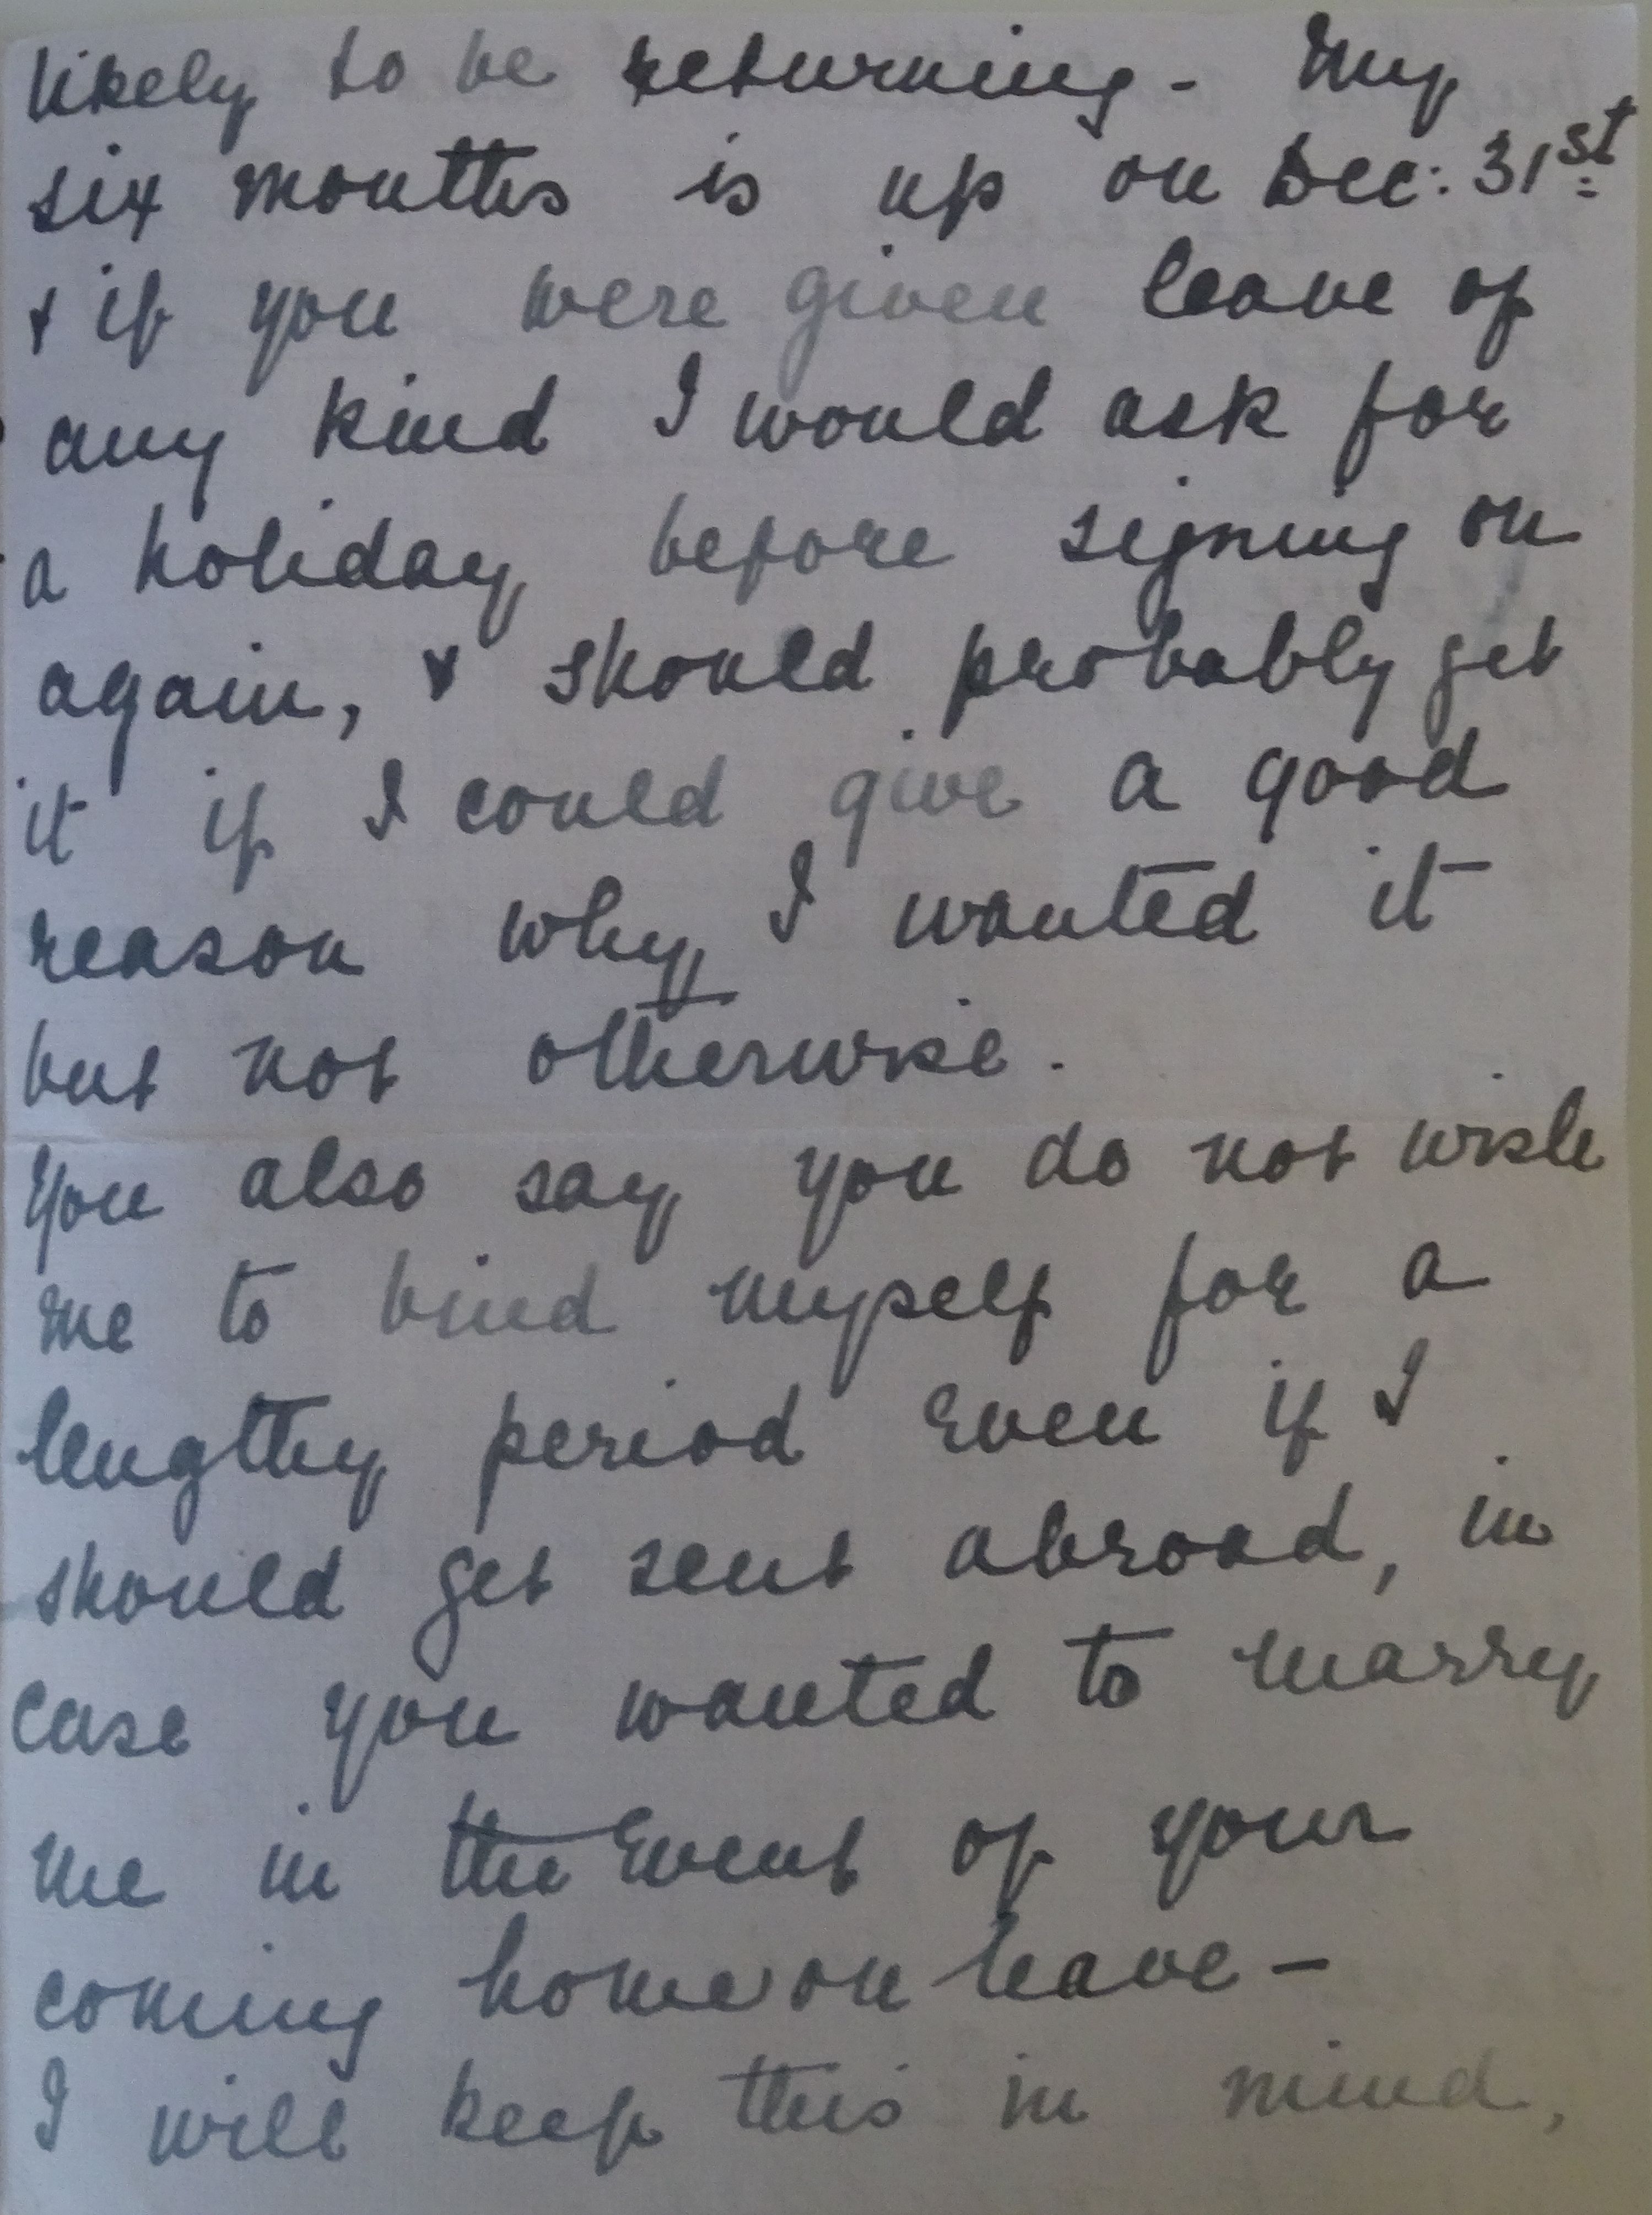 likely to be returning - My
six months is up on Dec: 31st
& if you were given leave of
any kind I would ask for
a holiday before signing on
again, & should probably get
it if I could give a good
reason why I wanted it
but not otherwise.
You also say you do not wish
me to bind myself for a
lengthy period even if I
should get sent abroad, in
case you wanted to marry
me in the event of your
coming home on leave -
I will keep this in mind,